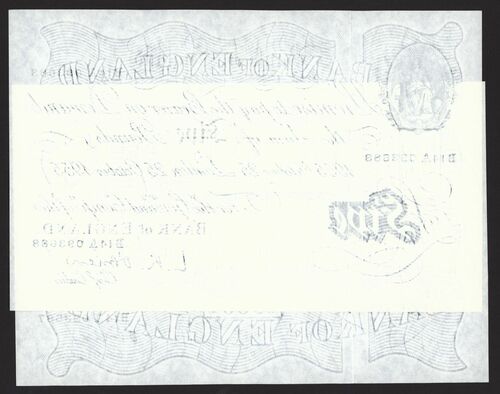 BANK OF ENGLAND
I Promise to pay the Bearer on Demand
the Sum of Five Pounds
1955 October 25 London 25 October 1955
For the Govr and Compa of the
BANK of ENGLAND
Five
B14A 093688
B14A 093688
L.K. O'Brien
Chief Cashier
BANK OF ENGLAND